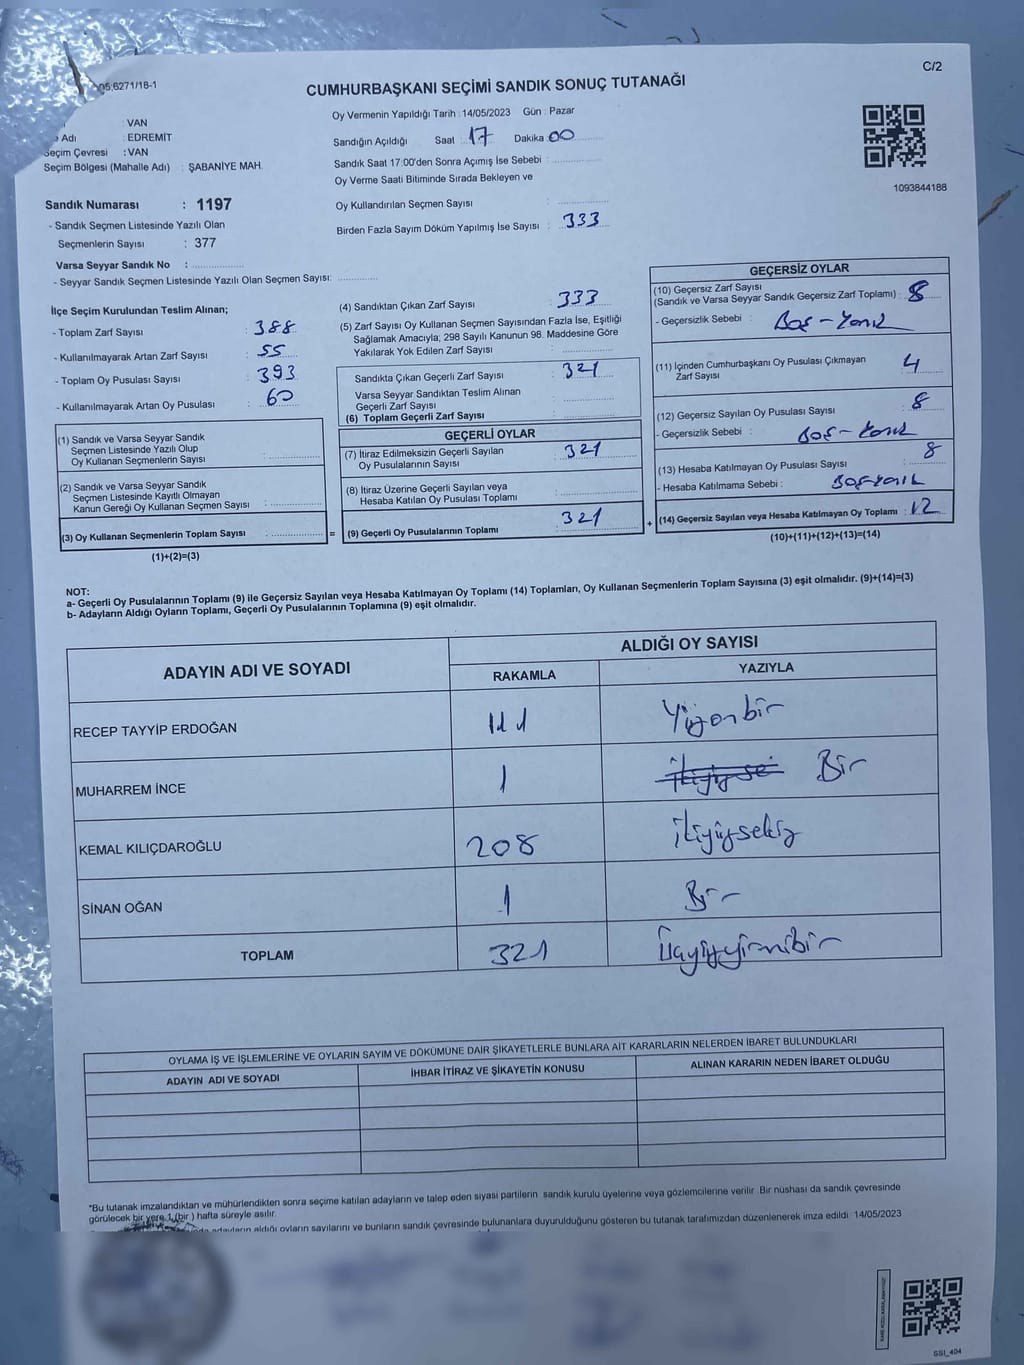 C/2
05.6271/18-1
CUMHURBAŞKANI SEÇİMİ SANDIK SONUÇ TUTANAĞI
: VAN
Adı : EDREMIT
Seçim Çevresi : VAN
Seçim Bölgesi (Mahalle Adı) : ŞABANİYE MAH.
Sandık Numarası : 1197
- Sandık Seçmen Listesinde Yazılı Olan
Seçmenlerin Sayısı : 377
Varsa Seyyar Sandık No :
- Seyyar Sandık Seçmen Listesinde Yazılı Olan Seçmen Sayısı:
Oy Vermenin Yapıldığı Tarih : 14/05/2023 Gün : Pazar
Sandığın Açıldığı Saat 17 Dakika 00
Sandık Saat 17:00'den Sonra Açımış İse Sebebi :
Oy Verme Saati Bitiminde Sırada Bekleyen ve
Oy Kullandırılan Seçmen Sayısı :
Birden Fazla Sayım Döküm Yapılmış İse Sayısı : 333
1093844188
İlçe Seçim Kurulundan Teslim Alınan;
- Toplam Zarf Sayısı : 388
- Kullanılmayarak Artan Zarf Sayısı : 55
- Toplam Oy Pusulası Sayısı : 393
- Kullanılmayarak Artan Oy Pusulası : 60
(1) Sandık ve Varsa Seyyar Sandık
Seçmen Listesinde Yazılı Olup
Oy Kullanan Seçmenlerin Sayısı :
(2) Sandık ve Varsa Seyyar Sandık
Seçmen Listesinde Kayıtlı Olmayan
Kanun Gereği Oy Kullanan Seçmen Sayısı :
(3) Oy Kullanan Seçmenlerin Toplam Sayısı :
(1)+(2)=(3)
(4) Sandıktan Çıkan Zarf Sayısı : 333
(5) Zarf Sayısı Oy Kullanan Seçmen Sayısından Fazla İse, Eşitliği
Sağlamak Amacıyla; 298 Sayılı Kanunun 98. Maddesine Göre
Yakılarak Yok Edilen Zarf Sayısı :
Sandıkta Çıkan Geçerli Zarf Sayısı : 321
Varsa Seyyar Sandıktan Teslim Alınan
Geçerli Zarf Sayısı :
(6) Toplam Geçerli Zarf Sayısı :
GEÇERLİ OYLAR
(7) İtiraz Edilmeksizin Geçerli Sayılan
Oy Pusulalarının Sayısı : 321
(8) İtiraz Üzerine Geçerli Sayılan veya
Hesaba Katılan Oy Pusulası Toplamı :
= (9) Geçerli Oy Pusulalarının Toplamı : 321
GEÇERSİZ OYLAR
(10) Geçersiz Zarf Sayısı
(Sandık ve Varsa Seyyar Sandık Geçersiz Zarf Toplamı) : 8
- Geçersizlik Sebebi :
(11) İçinden Cumhurbaşkanı Oy Pusulası Çıkmayan
Zarf Sayısı : 4
(12) Geçersiz Sayılan Oy Pusulası Sayısı : 8
- Geçersizlik Sebebi :
(13) Hesaba Katılmayan Oy Pusulası Sayısı : 8
- Hesaba Katılmama Sebebi :
+ (14) Geçersiz Sayılan veya Hesaba Katılmayan Oy Toplamı : 12
(10)+(11)+(12)+(13)=(14)
NOT:
a- Geçerli Oy Pusulalarının Toplamı (9) ile Geçersiz Sayılan veya Hesaba Katılmayan Oy Toplamı (14) Toplamları, Oy Kullanan Seçmenlerin Toplam Sayısına (3) eşit olmalıdır. (9)+(14)=(3)
b- Adayların Aldığı Oyların Toplamı, Geçerli Oy Pusulalarının Toplamına (9) eşit olmalıdır.
ADAYIN ADI VE SOYADI ALDIĞI OY SAYISI
RAKAMLA YAZIYLA
RECEP TAYYİP ERDOĞAN 111 Yüzonbir
MUHARREM İNCE 1 Bir
KEMAL KILIÇDAROĞLU 208 ikiyüzsekiz
SİNAN OĞAN 1 Bir
TOPLAM 321 Üçyüzyirmibir
OYLAMA İŞ VE İŞLEMLERİNE VE OYLARIN SAYIM VE DÖKÜMÜNE DAİR ŞİKAYETLERLE BUNLARA AİT KARARLARIN NELERDEN İBARET BULUNDUKLARI
ADAYIN ADI VE SOYADI İHBAR İTİRAZ VE ŞİKAYETİN KONUSU ALINAN KARARIN NEDEN İBARET OLDUĞU
*Bu tutanak imzalandıktan ve mühürlendikten sonra seçime katılan adayların ve talep eden siyasi partilerin sandık kurulu üyelerine veya gözlemcilerine verilir. Bir nüshası da sandık çevresinde
görülecek bir yere 1 (bir ) hafta süreyle asılır.
adayların aldığı oyların sayılarını ve bunların sandık çevresinde bulunanlara duyurulduğunu gösteren bu tutanak tarafımızdan düzenlenerek imza edildi 14/05/2023
SSI_404